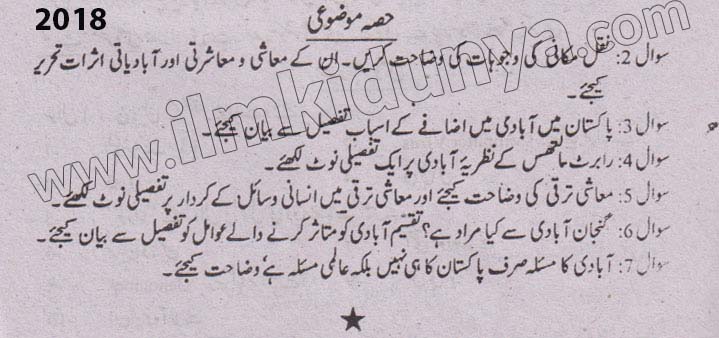 2018
حصہ موضوعی
سوال 2: نقل مکانی کی وجوہات کی وضاحت کریں۔ ان کے معاشی و معاشرتی اور آبادیاتی اثرات تحریر
کیجئے۔
سوال 3: پاکستان میں آبادی میں اضافے کے اسباب تفصیل سے بیان کیجئے۔
سوال 4: رابرٹ مالتھس کے نظریۂ آبادی پر ایک تفصیلی نوٹ لکھئے۔
سوال 5: معاشی ترقی کی وضاحت کیجئے اور معاشی ترقی میں انسانی وسائل کے کردار پر تفصیلی نوٹ لکھئے۔
سوال 6: گنجان آبادی سے کیا مراد ہے؟ تقسیم آبادی کو متاثر کرنے والے عوامل کو تفصیل سے بیان کیجئے۔
سوال 7: آبادی کا مسئلہ صرف پاکستان کا ہی نہیں بلکہ عالمی مسئلہ ہے، وضاحت کیجئے۔
www.ilmkidunya.com